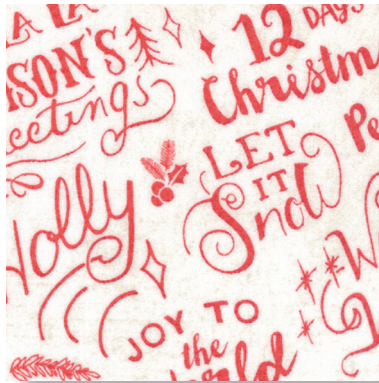 LA LA
SON'S
eetings
12 DAYS
Christm
Pe
LET
IT
Snow
Jolly
JOY TO
the
rld
W